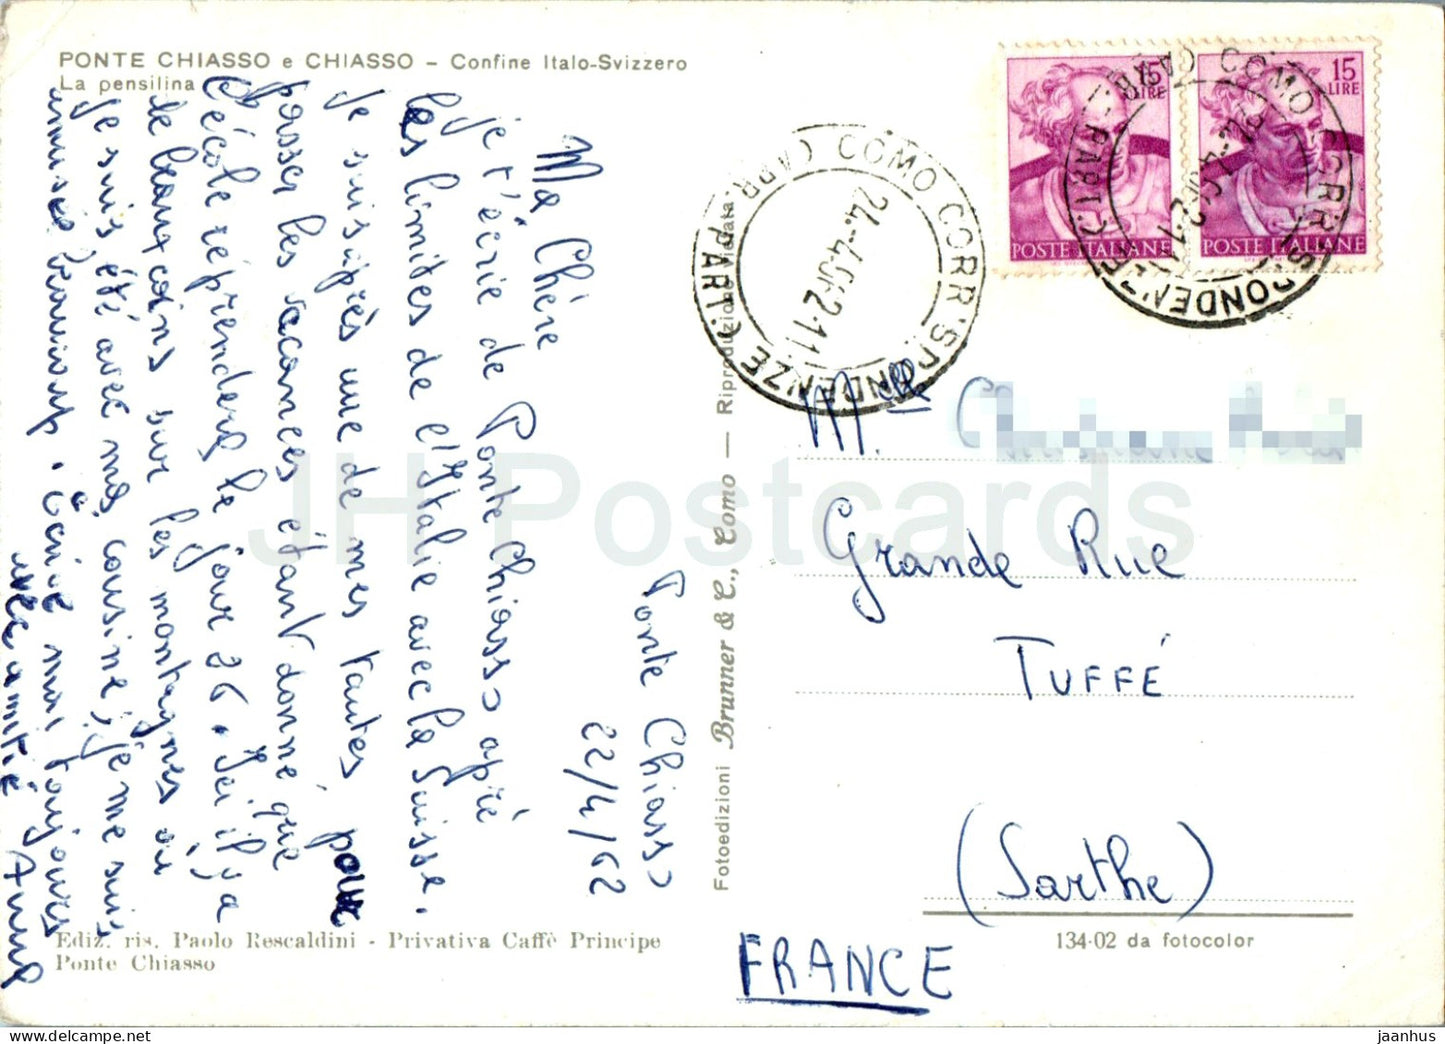 PONTE CHIASSO e CHIASSO – Confine Italo-Svizzero
La pensilina
Ponte Chiasso
22/4/62
Ma Chère
je t'écrie de Ponte Chiasso aprè
les limites de l'Italie avec la Suisse.
Je suis après une de mes tantes pour
passer les vacances étant donné que
l'école réprendera le jour 26. Ici il y a
de beaux coins sur les montagnes où
je suis été avec ma cousine; je me suis
amusée beaucoup. Écrive moi toujours
avec amitié Anna
Ediz. ris. Paolo Rescaldini - Privativa Caffè Principe
Ponte Chiasso
Fotoedizioni Brunner & C., Como — Riproduzione vietata
COMO CORR'SPONDENZE (ARR. PART.)
24-4-1962-11
15
LIRE
POSTE ITALIANE
15
LIRE
POSTE ITALIANE
COMO CORR'SPONDENZE (ARR. PART.)
24-4-1962-11
Mlle
Grande Rue
TUFFÉ
(Sarthe)
FRANCE
134-02 da fotocolor
JH Postcards
https://www.delcampe.net
jaanhus